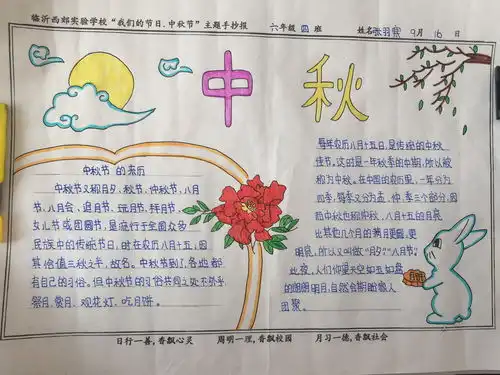 临沂西郊实验学校“我们的节日.中秋节”主题手抄报 六年级 四 班 姓名 张羽 9月 16日
中 秋
中秋节 的来历
中秋节又称月夕、秋节、仲秋节、八月
节、八月会、追月节、玩月节、拜月节、
女儿节或团圆节,是流行于全国众多
民族中的传统节日,时在农历八月十五,因
其恰值三秋之半,故名。中秋节到了,各地都
有自己的习俗。但中秋节的习俗共同之处不外乎
祭月、赏月、观花灯、吃月饼。
每年农历八月十五日,是传统的中秋
佳节。这时是一年秋季的中期,所以被
称为中秋。在中国的农历里,一年分为
四季,每季又分为孟、仲、季三个部分,因
而中秋也称仲秋。八月十五的月亮
比其他几个月的满月更圆,更
明亮,所以又叫做“月夕”“八月节”。
此夜,人们仰望天空如玉如盘
的朗朗明月,自然会期盼家人
团聚。
日行一善,香飘心灵 周明一理,香飘校园 月习一德,香飘社会